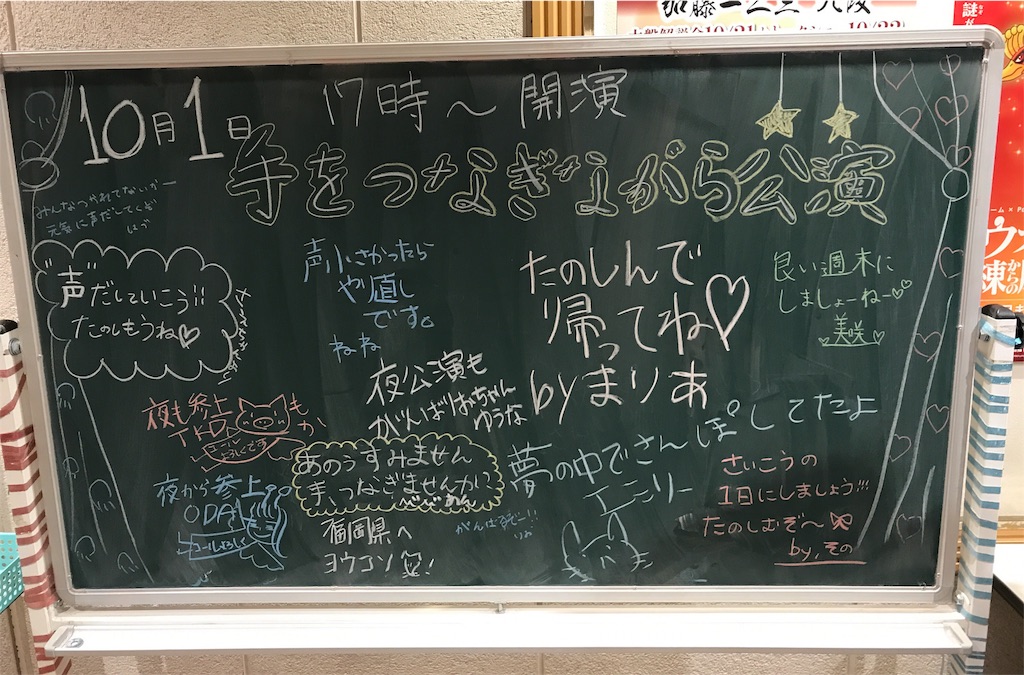 10月1日
17時～開演
手をつなぎながら公演
みんなつかれてないかー
元気に声だしてくぞ
"声"だしていこう!!
たのしもうね♡
声小さかったら
やり直し
です。
ねね
たのしんで
帰ってね♡
byまりあ
良い週末に
しましょーねー♡♡
美咲♡
夜も参上
TKD
も
か
夜公演も
がんばりおちゃん
ゆうな
あのうすみません
手、つなぎませんか?
夢の中でさんぽしてたよ
エミリー
夜から参上
ODA
コールよろしく
福岡県へ
ヨウコソ
!
がんばるぞー!!
りの
さいこうの
1日にしましょう!!!
たのしむぞ～
by,その